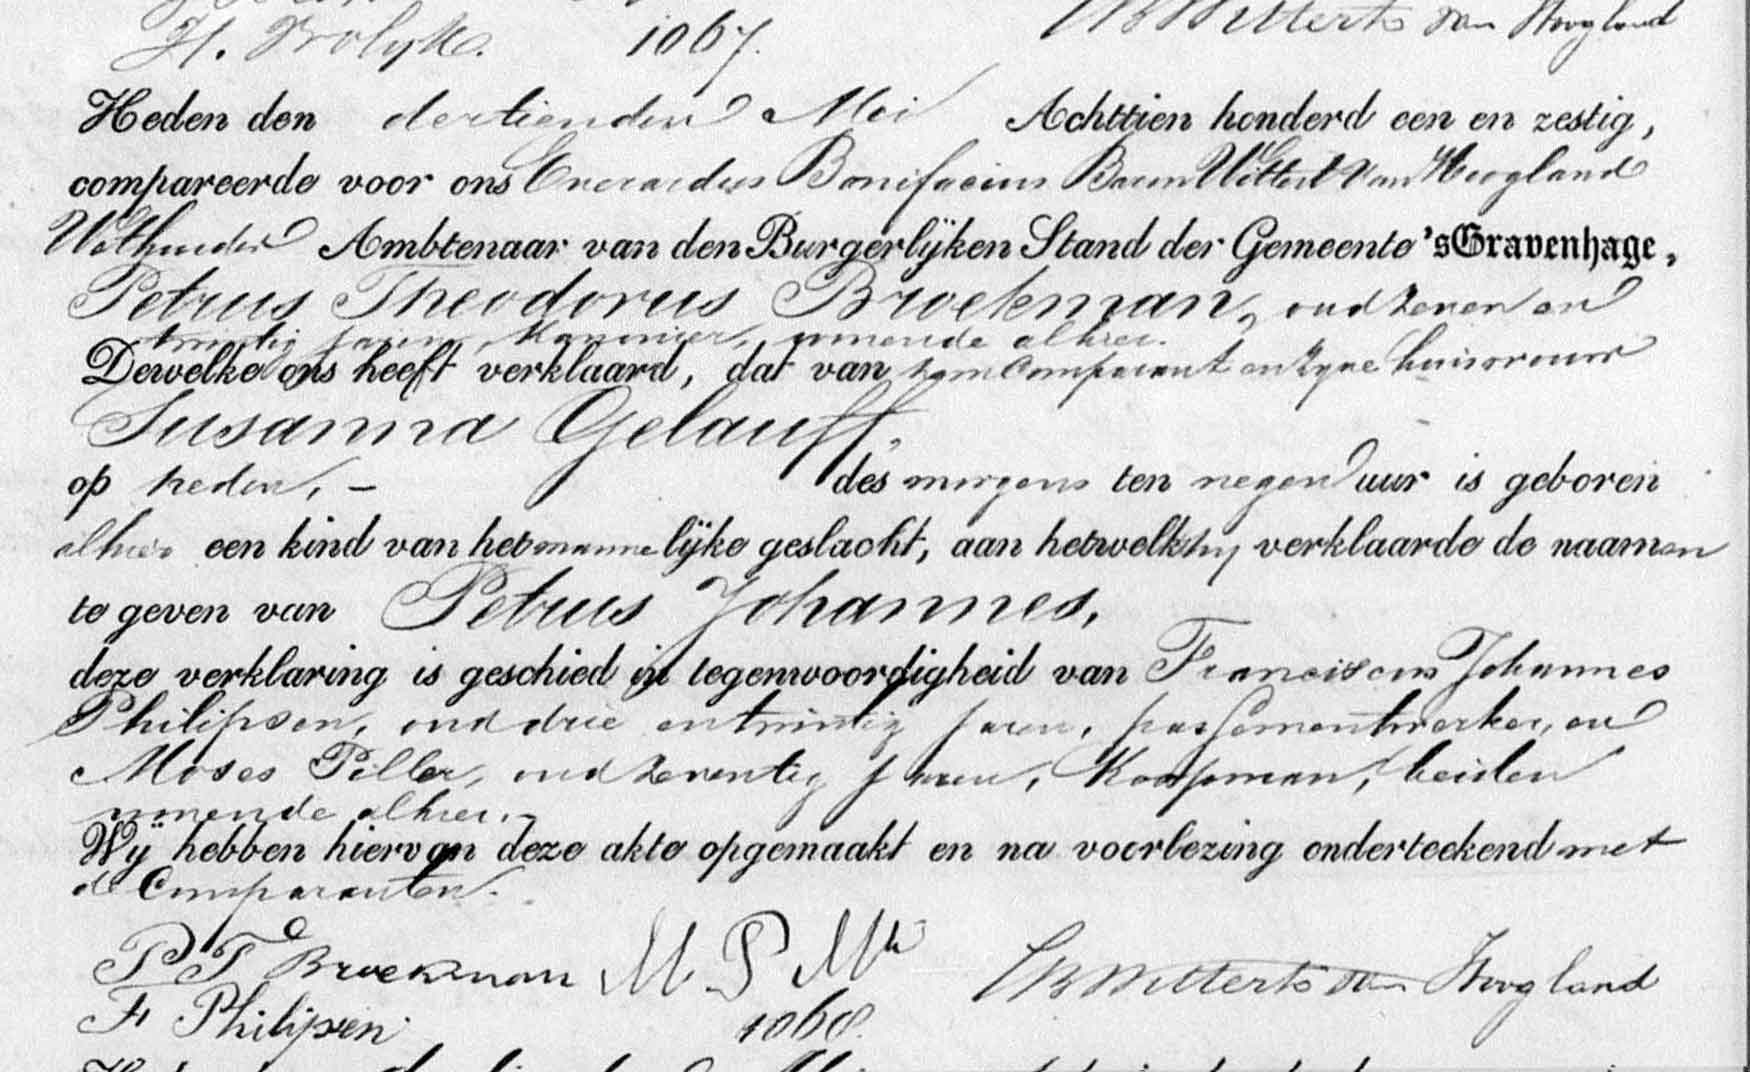 H. Vrolyk. 1067.
Wittert van Hoogland
Heden den dertienden Mei Achttien honderd een en zestig,
compareerde voor ons Everardus Bonifacius Baron Wittert van Hoogland
Wethouder Ambtenaar van den Burgerlijken Stand der Gemeente 'sGravenhage,
Petrus Theodorus Broekman, oud zeven en
twintig jaren, wonende alhier.
Dewelke ons heeft verklaard, dat van hem Comparant en zyne huisvrouw
Susanna Gelauff,
op heden, – des morgens ten negen uur is geboren
alhier een kind van het mannelijke geslacht, aan hetwelk hij verklaarde de naamen
te geven van Petrus Johannes,
deze verklaring is geschied in tegenwoordigheid van Franciscus Johannes
Philipsen, oud drie en twintig jaren, passementwerker, en
Moses Piller, oud zeventig jaren, Koopman, beiden
wonende alhier.–
Wij hebben hiervan deze akte opgemaakt en na voorlezing onderteekend met
de Comparanten.
P T Broekman M P Wittert van Hoogland
F Philipsen 1068.